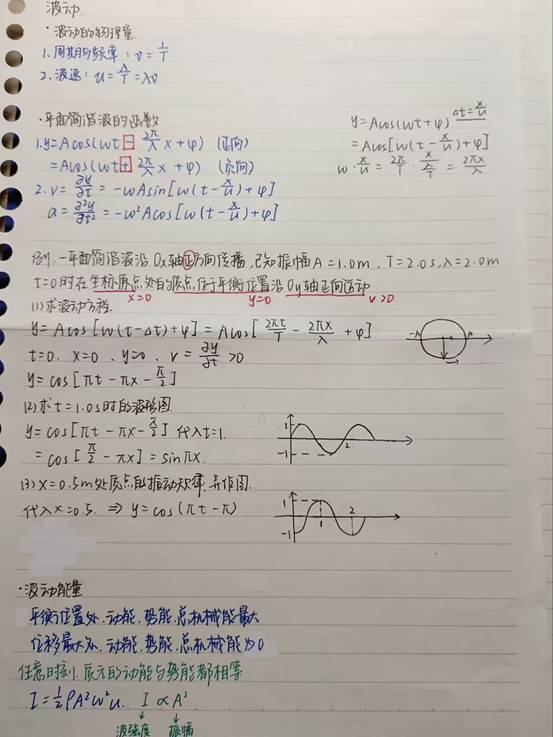 波动.
·波动的物理量.
1.周期与频率:ν=1/T
2.波速:u=λ/T=λν
·平面简谐波的函数
1.y=Acos(ωt-2π/λ x+φ) (正向)
=Acos(ωt+2π/λ x+φ) (负向)
2.v=∂y/∂t=-ωAsin[ω(t-x/u)+φ]
a=∂²y/∂t²=-ω²Acos[ω(t-x/u)+φ]
y=Acos(ωt+φ) Δt=x/u
=Acos[ω(t-x/u)+φ]
ω·x/u=2π/T·x/(λ/T)=2πx/λ
例.一平面简谐波沿Ox轴正方向传播,已知振幅A=1.0m,T=2.0s,λ=2.0m
t=0时在坐标原点处的质点位于平衡位置沿Oy轴正向运动
x=0 y=0 v>0
(1)求波动方程.
y=Acos[ω(t-Δt)+φ]=Acos[2πt/T-2πx/λ+φ]
t=0.x=0、y=0、v=∂y/∂t>0
y=cos[πt-πx-π/2]
-A A
(2)求t=1.0s时的波形图.
y=cos[πt-πx-π/2] 代入t=1.
=cos[π/2-πx]=sinπx.
1
-1
2
(3)x=0.5m处质点的振动规律,并作图.
代入x=0.5.⇒y=cos(πt-π)
1
-1
1
2
·波动能量
平衡位置处.动能.势能.总机械能最大
位移最大处.动能.势能.总机械能为0
任意时刻.质元的动能与势能都相等
I=1/2ρA²ω²u. I∝A²
↓ ↓
波强度 振幅